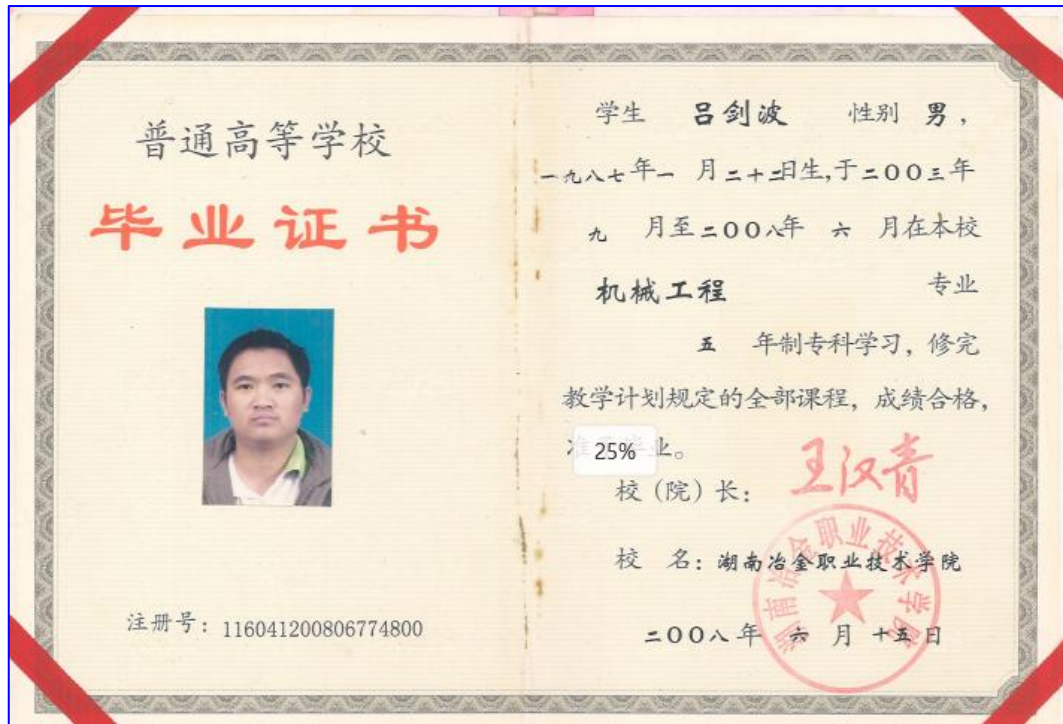 普通高等学校
毕业证书
注册号：116041200806774800
学生 吕剑波 性别 男，
一九八七年一 月二十二日生,于二00三年
九 月至二00八年 六 月在本校
机械工程 专业
五 年制专科学习，修完
教学计划规定的全部课程，成绩合格，
准 业。
25%
校（院）长：
王汉青
校 名：湖南冶金职业技术学院
湖南冶金职业技术学院
二00八年 六 月 十五日